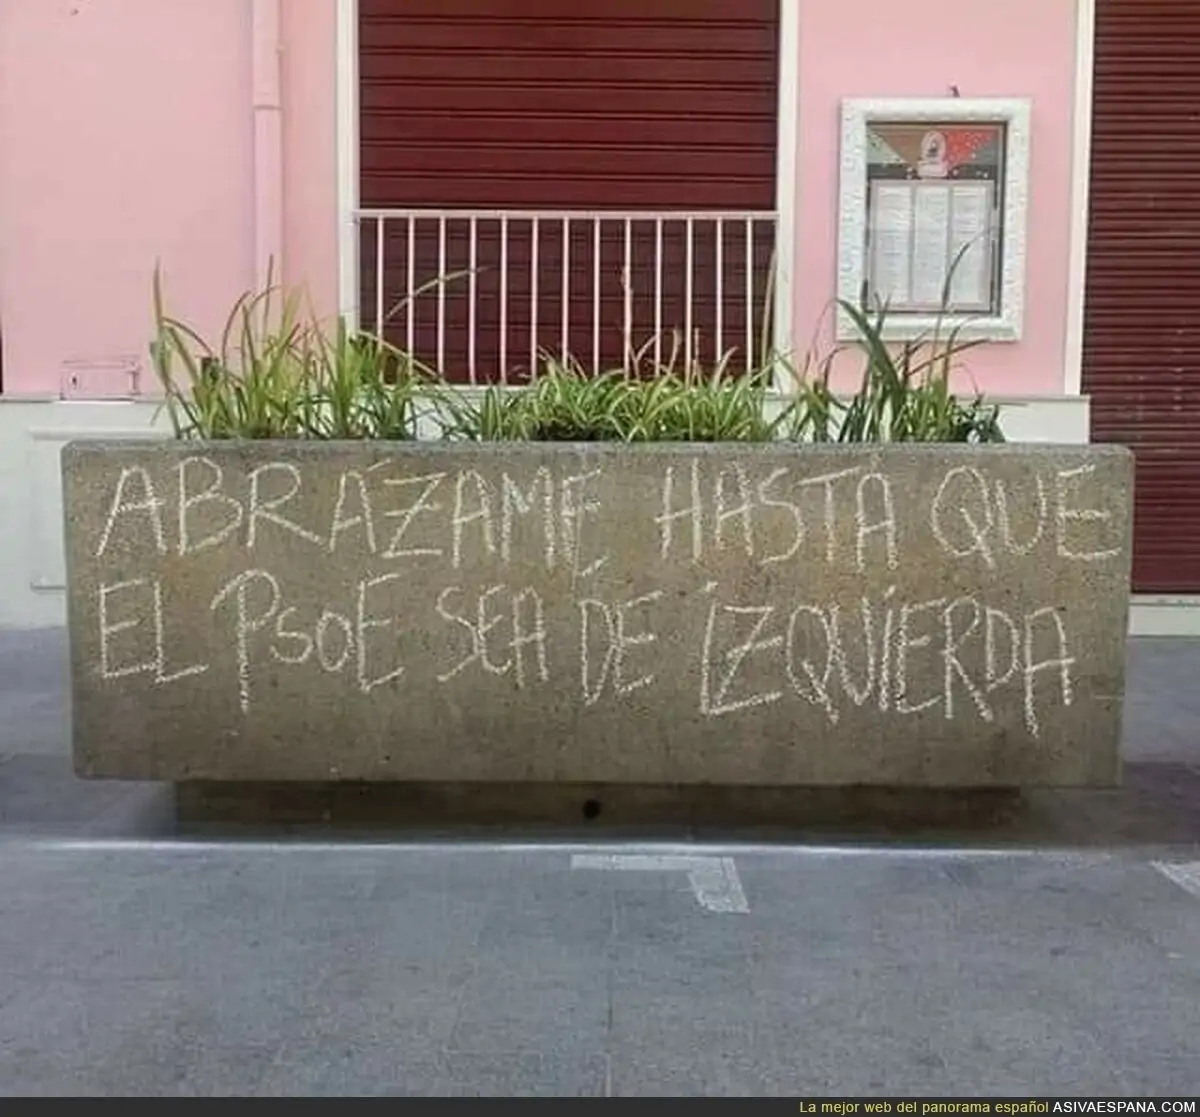 ABRÁZAME HASTA QUE
EL PSOE SEA DE IZQUIERDA
La mejor web del panorama español ASIVAESPANA.COM